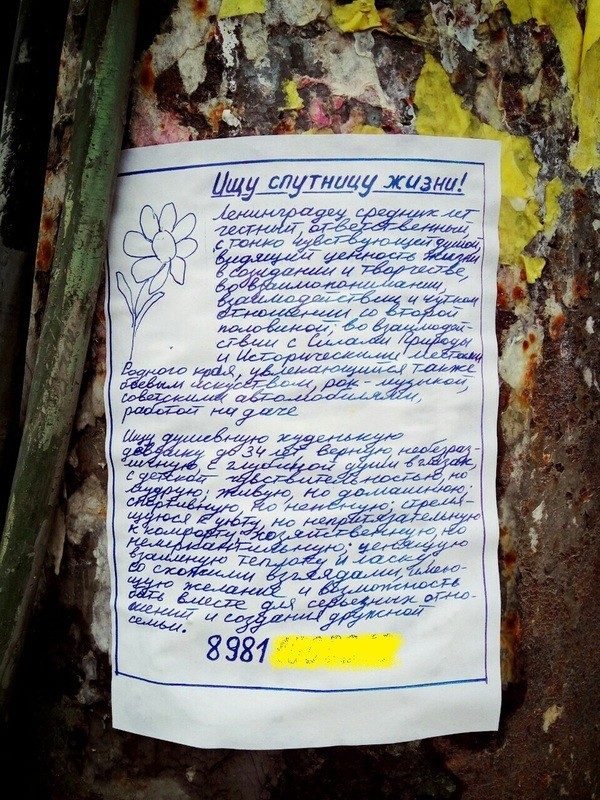 Ищу спутницу жизни!
Ленинградец средних лет
честный, ответственный,
с тонко чувствующей душой,
видящий ценность жизни
в созидании и творчестве,
во взаимопонимании,
взаимодействии и чутком
отношении со второй
половиной, во взаимодей-
ствии с Силами Природы
и Историческими Местами
Родного края, увлекающийся также
боевым искусством, рок-музыкой,
советскими автомобилями,
работой на даче
Ищу душевную худенькую
девушку до 34 лет, верную, небезраз-
личную, с глубиной души в глазах,
с детской чувствительностью, но
мудрую; живую, но домашнюю;
спортивную, но нежную; стремя-
щуюся к уюту, но непритязательную
к комфорту; хозяйственную, но
немеркантильную; ценящую
взаимную теплоту и ласку,
со схожими взглядами, имею-
щую желание и возможность
быть вместе для серьёзных отно-
шений и создания дружной
семьи.
8981